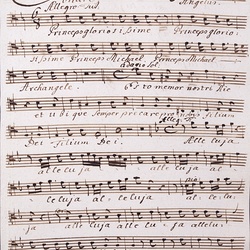 Angelus.
Allegro
Princeps gloriosissime Princeps glorio:
sissime Princeps Michael Princeps Michael
Adagio Sol.
Archangele. esto memor nostri hic
et ubique semper precare pro nobis filium
Alleg
Dei filium Dei. Alleluja
alleluja alleluja al
leluja alleluja alleluja al
alleluja alleluja allelu: